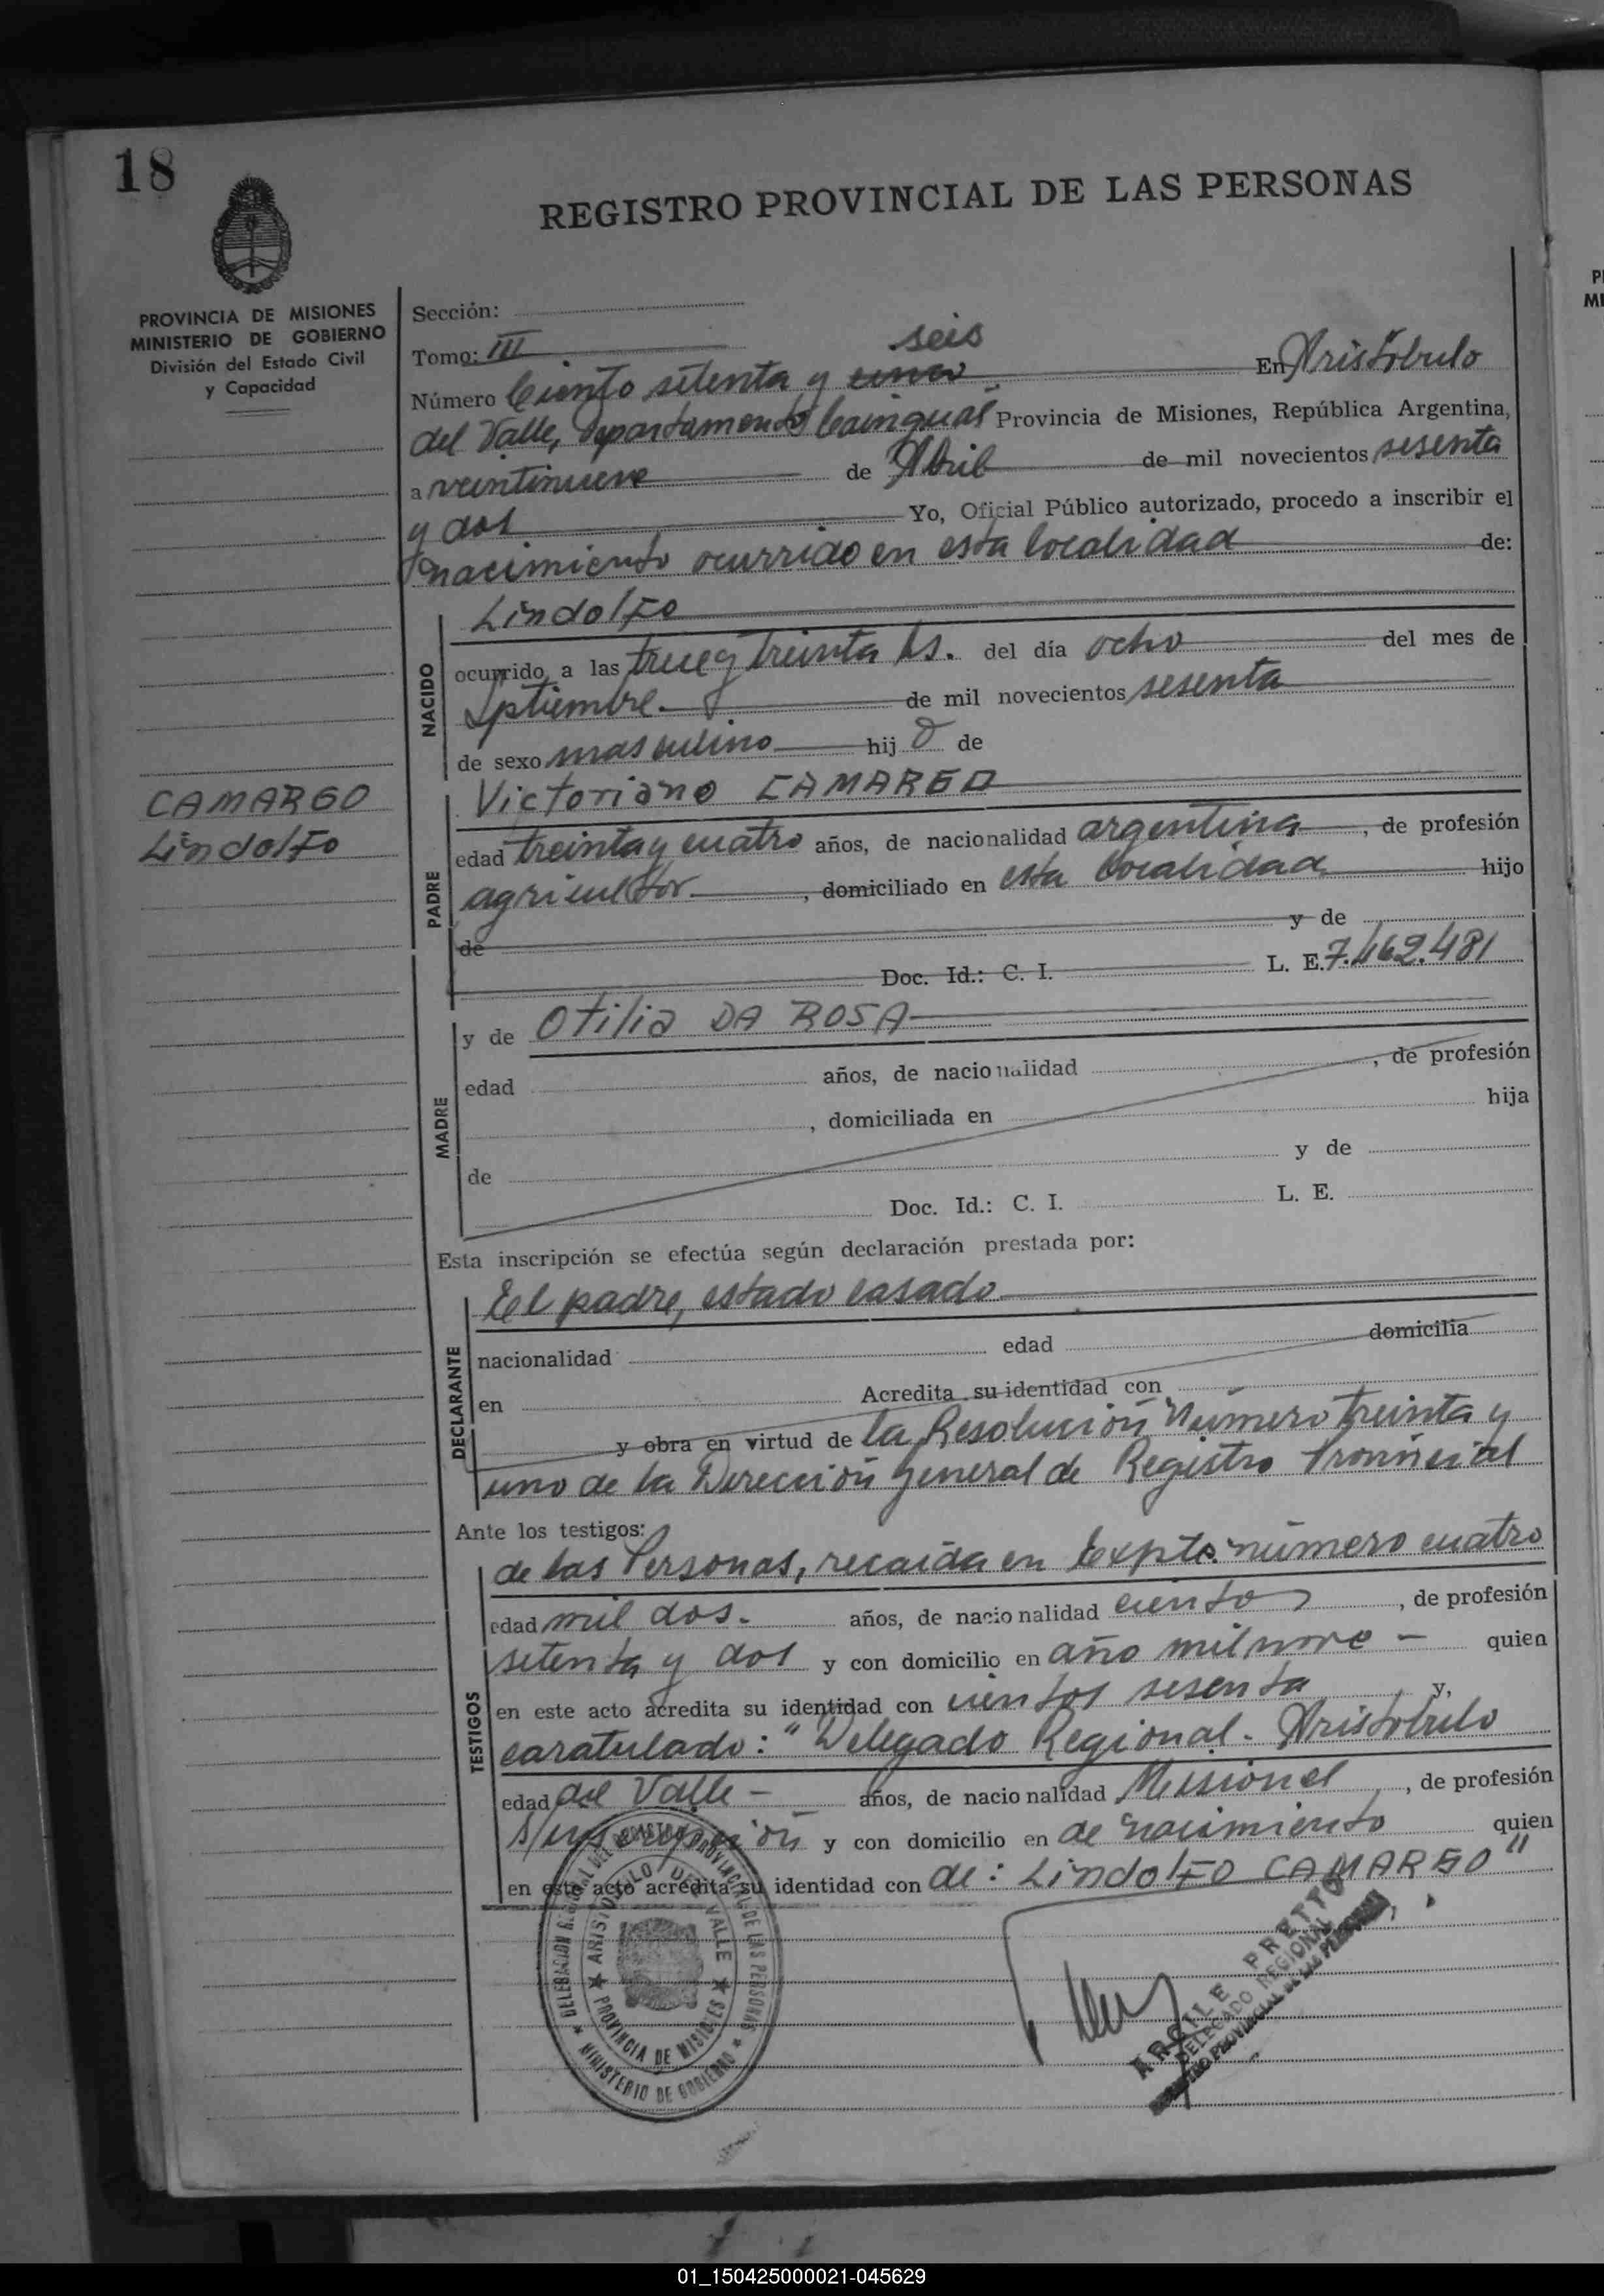 18
REGISTRO PROVINCIAL DE LAS PERSONAS
PROVINCIA DE MISIONES
MINISTERIO DE GOBIERNO
División del Estado Civil
y Capacidad
Sección:
Tomo: III
seis
Número Ciento setenta y cinco En Aristóbulo
del Valle, Departamento Cainguás Provincia de Misiones, República Argentina,
a veintinueve de Abril de mil novecientos sesenta
y dos Yo, Oficial Público autorizado, procedo a inscribir el
nacimiento ocurrido en esta localidad de:
NACIDO
Lindolfo
ocurrido a las trece y treinta hs. del día ocho del mes de
Septiembre. de mil novecientos sesenta
de sexo masculino hij o de
CAMARGO
Lindolfo
PADRE
Victoriano CAMARGO
edad treinta y cuatro años, de nacionalidad argentina, de profesión
agricultor, domiciliado en esta localidad hijo
de y de
Doc. Id.: C. I. L. E. 7.462.481
MADRE
y de Otilia DA ROSA
edad años, de nacionalidad, de profesión
, domiciliada en hija
de y de
Doc. Id.: C. I. L. E.
Esta inscripción se efectúa según declaración prestada por:
DECLARANTE
El padre, estado casado
nacionalidad edad domicilia
en Acredita su identidad con
y obra en virtud de la Resolución Número treinta y
uno de la Dirección General de Registro Provincial
Ante los testigos:
TESTIGOS
de las Personas, recaída en Expte. número cuatro
edad mil dos. años, de nacionalidad ciento, de profesión
setenta y dos y con domicilio en año mil nove - quien
en este acto acredita su identidad con cientos sesenta y,
caratulado: "Delegado Regional. Aristóbulo
edad del Valle - años, de nacionalidad Misiones, de profesión
s/inscripción y con domicilio en de nacimiento quien
en este acto acredita su identidad con de: Lindolfo CAMARGO"
DELEGACION REGIONAL DEL REGISTRO PROVINCIAL DE LAS PERSONAS
ARISTOBULO DEL VALLE
PROVINCIA DE MISIONES
MINISTERIO DE GOBIERNO
ARGILE PRETTO
DELEGADO REGIONAL
REGISTRO PROVINCIAL DE LAS PERSONAS
01_150425000021-045629